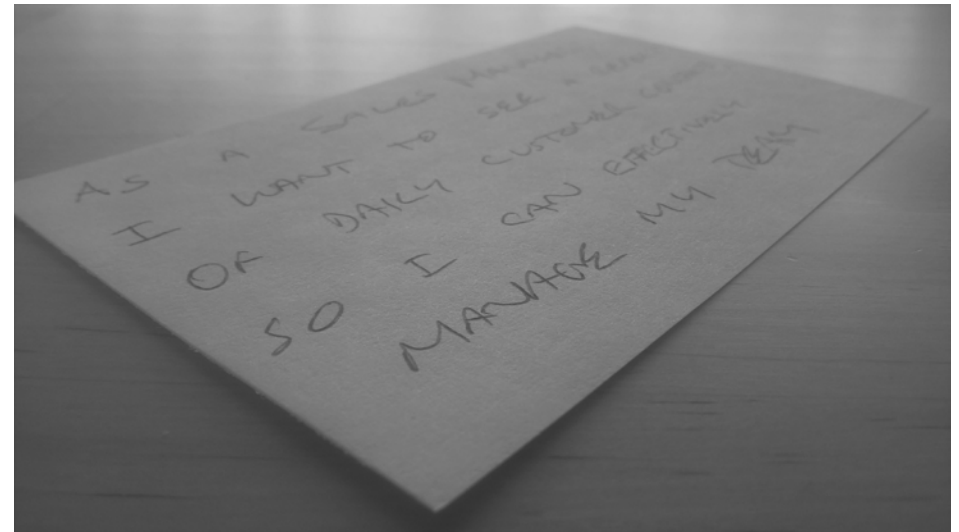 AS A SALES MANAGER
I WANT TO SEE A
OF DAILY CUSTOMER
SO I CAN EFFECTIVELY
MANAGE MY TEAM